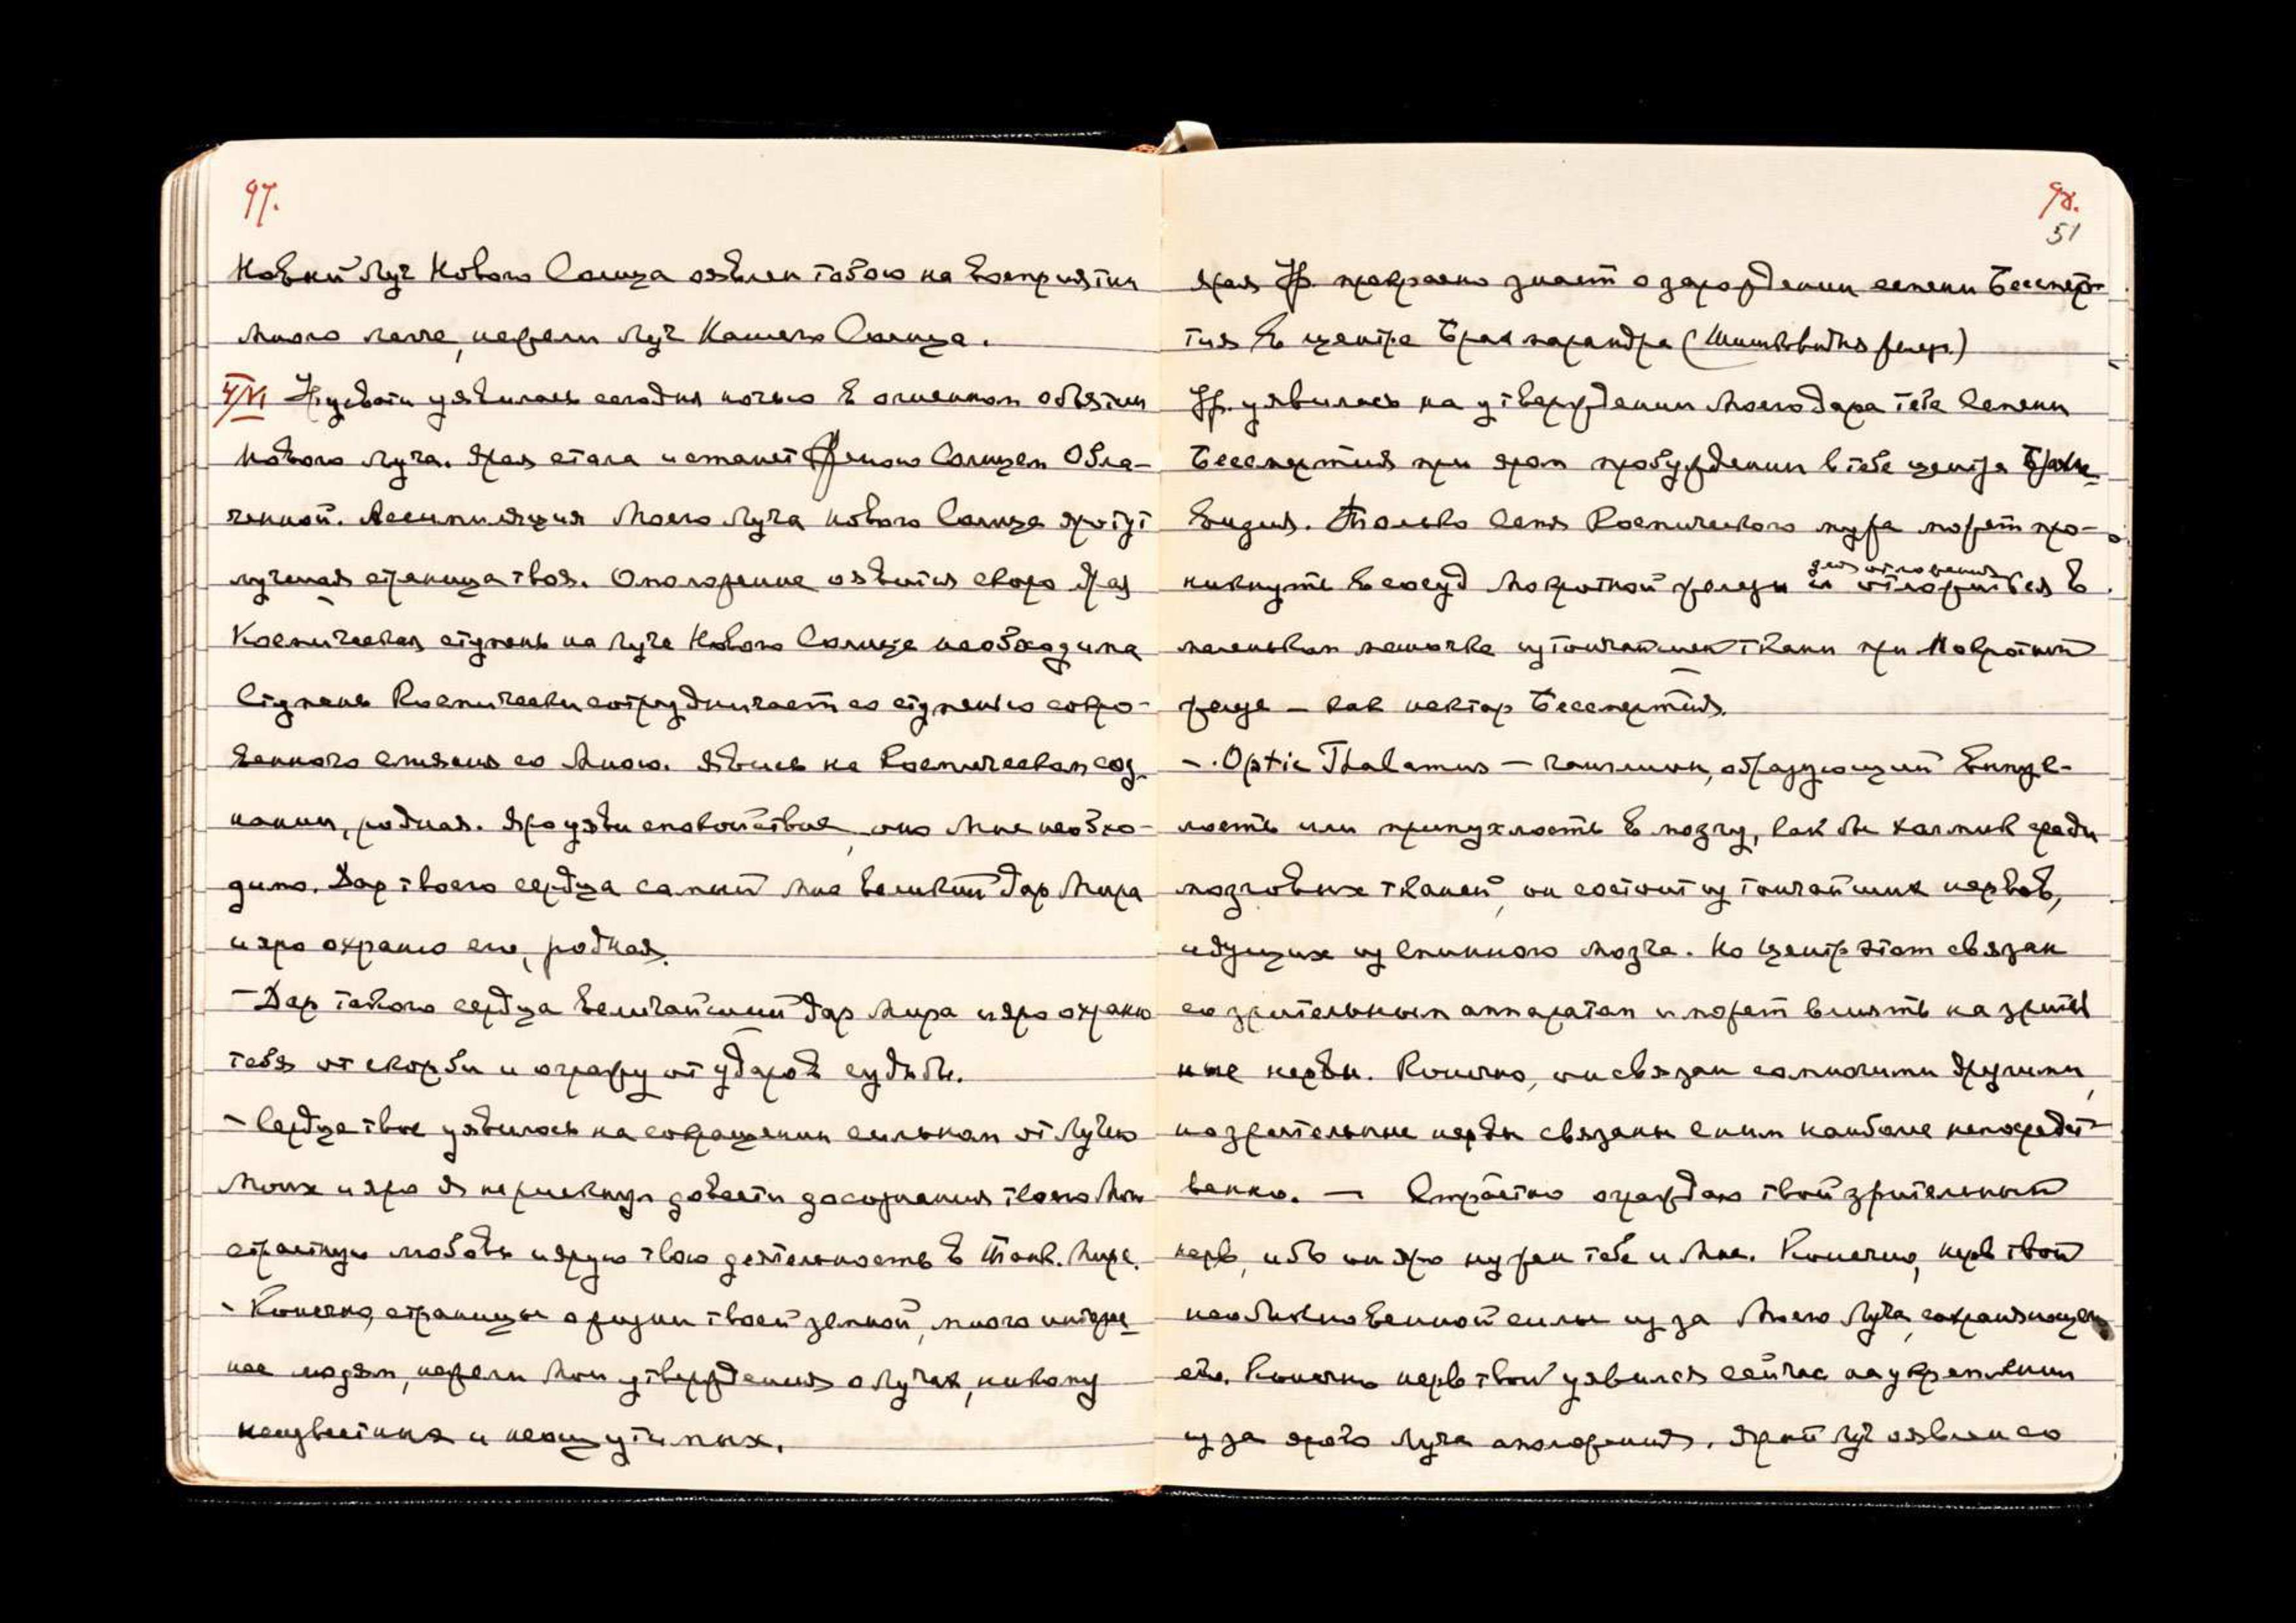 97.
Новый Луч Нового Солнца оявлен тобою на восприятии
много легче, нежели Луч Нашего Солнца.
4/VI Урусвати уявилась сегодня ночью в огненном объятии
Нового Луча. Ярая стала и станет Женою Солнцем Обла-
ченной. Ассимиляция Моего Луча Нового Солнца яро
лучшая страница твоя. Омоложение оявится скоро. Ярая
Космическая ступень на Луче Нового Солнца необходима
Ступень Космически сотрудничает со ступенью сокро-
венного слияния со Мною. Явись на Космическом соз-
нании, родная. Яро уяви спокойствие, оно Мне необхо-
димо. Дар твоего сердца самый Мне великий Дар Мира
и яро охраню его, родная.
– Дар такого сердца величайший Дар Мира и яро охраню
тебя от скорби и огражу от ударов судьбы.
– Сердце твое уявилось на сокращении сильном от Лучей
Моих и яро Я не премину довести до сознания твоего Мою
страстную любовь и ярую твою деятельность в Тонк. Мире.
– Конечно, страницы о жизни твоей земной, много интерес
нее людям, нежели Мои утверждения о Лучах, никому
неизвестных и неощутимых.
98.
51
Ярая Ур. прекрасно знает о зарождении семени Бессмер-
тия в центре Брамарандра (Шишковидная желез.)
Ур. уявилась на утверждении Моего Дара тебе Семени
Бессмертия при яром пробуждении в тебе центра Брам
Только Семя Космического мужа может про-
никнуть в сосуд Мокротной железы
для отложения
и отложиться в
маленьком мешочке из тончайшей ткани при Мокротной
железе – как нектар Бессмертия.
– Optic Thalamus – ганглион, образующий выпук-
лость или припухлость в мозгу, как бы холмик среди
мозговых тканей, он состоит из тончайших нервов,
идущих из спинного мозга. Но центр этот связан
со зрительным аппаратом и может влиять на зритель
ные нервы. Конечно, он связан со многими другими,
но зрительные нервы связаны с ним наиболее непосредст-
венно. – Страстно ограждаю твой зрительный
нерв, ибо он яро нужен тебе и Мне. Конечно, нерв твой
необыкновенной силы из за Моего Луча, сохраняющего
его. Конечно нерв твой уявился сейчас на укреплении
из за ярого Луча омоложения. Ярый Луч оявлен со